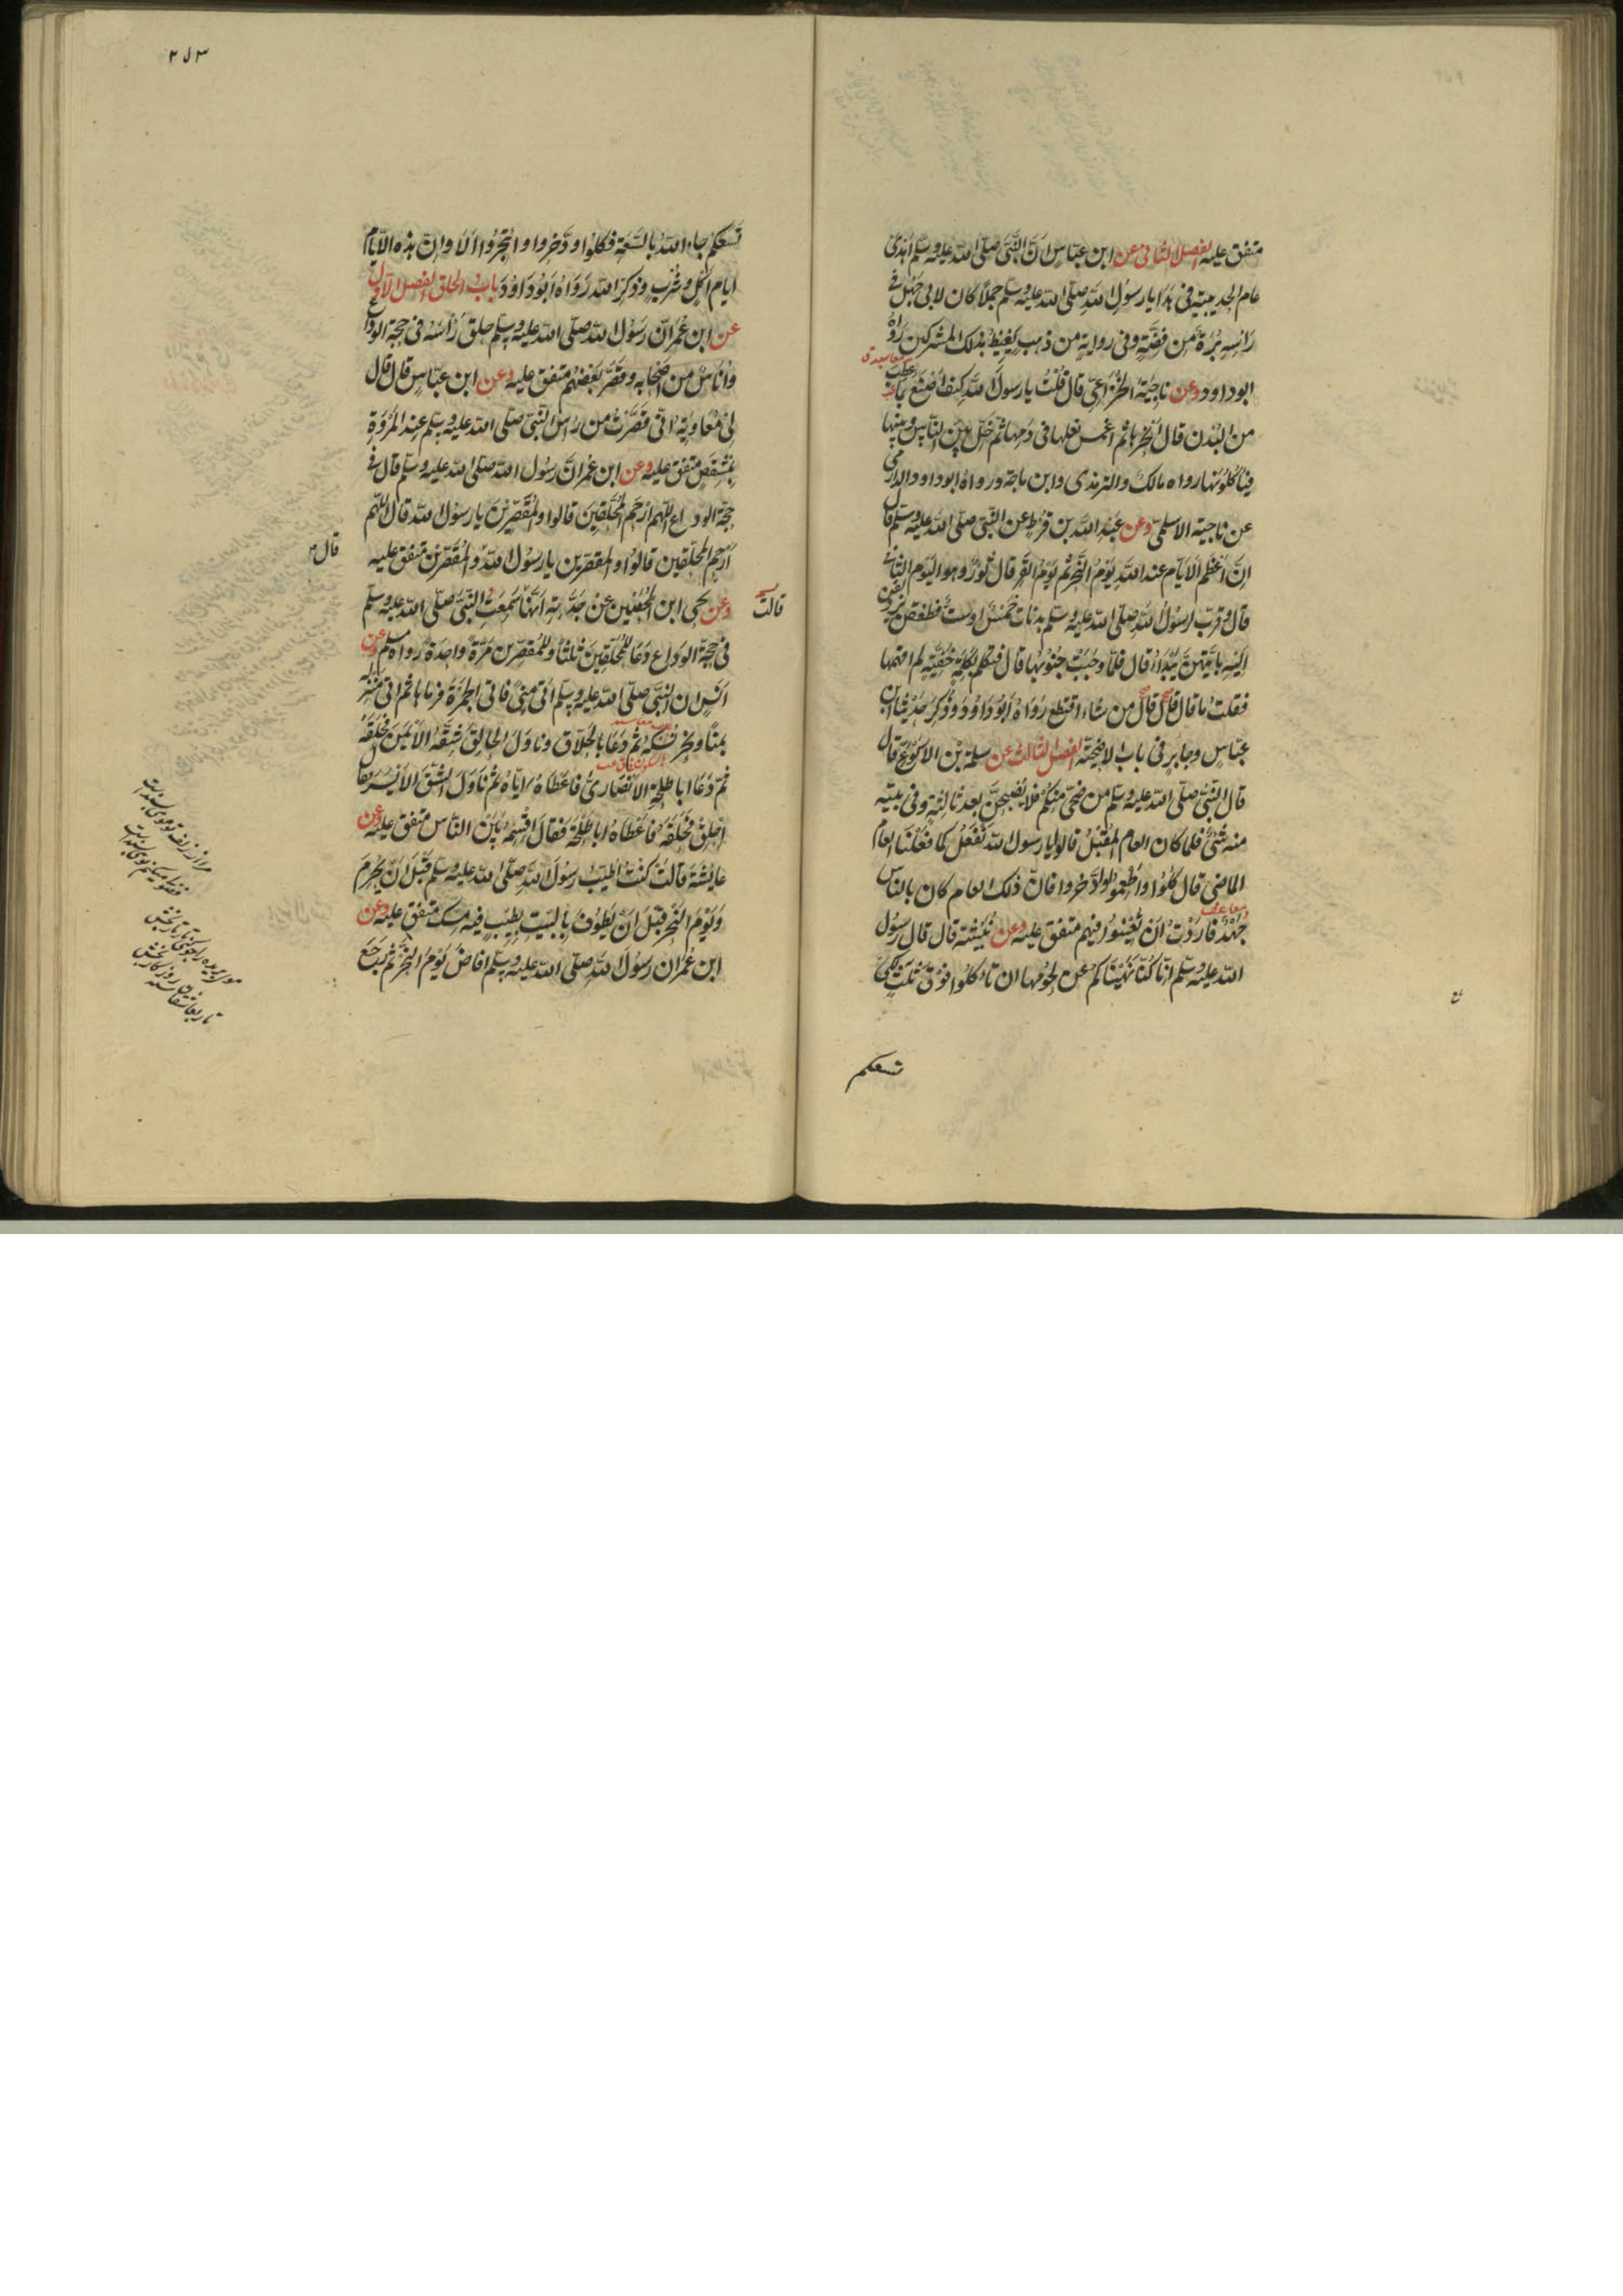 متفق عليه الفصل الثانى عن ابن عباس ان النبى صلى الله عليه وسلم اهدى
عام الحديبية فى هدايا رسول الله صلى الله عليه وسلم جملا كان لابى جهل فى
راسه برة من فضة وفى رواية من ذهب يغيظ بذلك المشركين رواه
ابو داود وعن ناجية الخزاعى قال قلت يا رسول الله كيف اصنع بما عطب
من البدن قال انحرها ثم اغمس نعلها فى دمها ثم خل بين الناس وبينها
فياكلونها رواه مالك والترمذى وابن ماجة ورواه ابو داود والدارمى
عن ناجية الاسلمى وعن عبد الله بن قرط عن النبى صلى الله عليه وسلم قال
ان اعظم الايام عند الله يوم النحر ثم يوم القر قال ثور وهو اليوم الثانى
قال وقرب لرسول الله صلى الله عليه وسلم بدنات خمس او ست فطفقن يزدلفن
اليه بايتهن يبدا قال فلما وجبت جنوبها قال فتكلم بكلمة خفية لم افهمها
فقلت ما قال قال قال من شاء اقتطع رواه ابو داود وذكر حديثا ابن
عباس وجابر فى باب الاضحية الفصل الثالث عن سلمة بن الاكوع قال
قال النبى صلى الله عليه وسلم من ضحى منكم فلا يصبحن بعد ثالثة وفى بيته
منه شئ فلما كان العام المقبل قالوا يا رسول الله نفعل كما فعلنا العام
الماضى قال كلوا واطعموا وادخروا فان ذلك العام كان بالناس
جهد فاردت ان تعينوا فيهم متفق عليه وعن نبيشة قال قال رسول
الله عليه وسلم انا كنا نهيناكم عن لحومها ان تاكلوا فوق ثلث لكى
تسعكم
تسعكم جاء الله بالسعة فكلوا وادخروا واتجروا الا وان هذه الايام
ايام اكل وشرب وذكر الله رواه ابو داود باب الحلق الفصل الاول
عن ابن عمر ان رسول الله صلى الله عليه وسلم حلق راسه فى حجة الوداع
واناس من اصحابه وقصر بعضهم متفق عليه وعن ابن عباس قال قال
لى معاوية انى قصرت من راس النبى صلى الله عليه وسلم عند المروة
بمشقص متفق عليه وعن ابن عمر ان رسول الله صلى الله عليه وسلم قال فى
حجة الوداع اللهم ارحم المحلقين قالوا والمقصرين يا رسول الله قال اللهم
ارحم المحلقين قالوا والمقصرين يا رسول الله والمقصرين متفق عليه
قال
وعن يحيى ابن الحصين عن جدته انها سمعت النبى صلى الله عليه وسلم
قالت
فى حجة الوداع دعا للمحلقين ثلثا وللمقصرين مرة واحدة رواه مسلم وعن
انس ان النبى صلى الله عليه وسلم اتى منى فاتى الجمرة فرماها ثم اتى منزله
بمنا ونحر نسكه ثم دعا بالحلاق وناول الحالق شقه الايمن فحلقه
ثم دعا ابا طلحة الانصارى فاعطاه اياه ثم ناول الشق الايسر فقال
احلق فحلقه فاعطاه ابا طلحة فقال اقسمه بين الناس متفق عليه وعن
عايشة قالت كنت اطيب رسول الله صلى الله عليه وسلم قبل ان يحرم
ويوم النحر قبل ان يطوف بالبيت بطيب فيه مسك متفق عليه وعن
ابن عمر ان رسول الله صلى الله عليه وسلم افاض يوم النحر ثم رجع